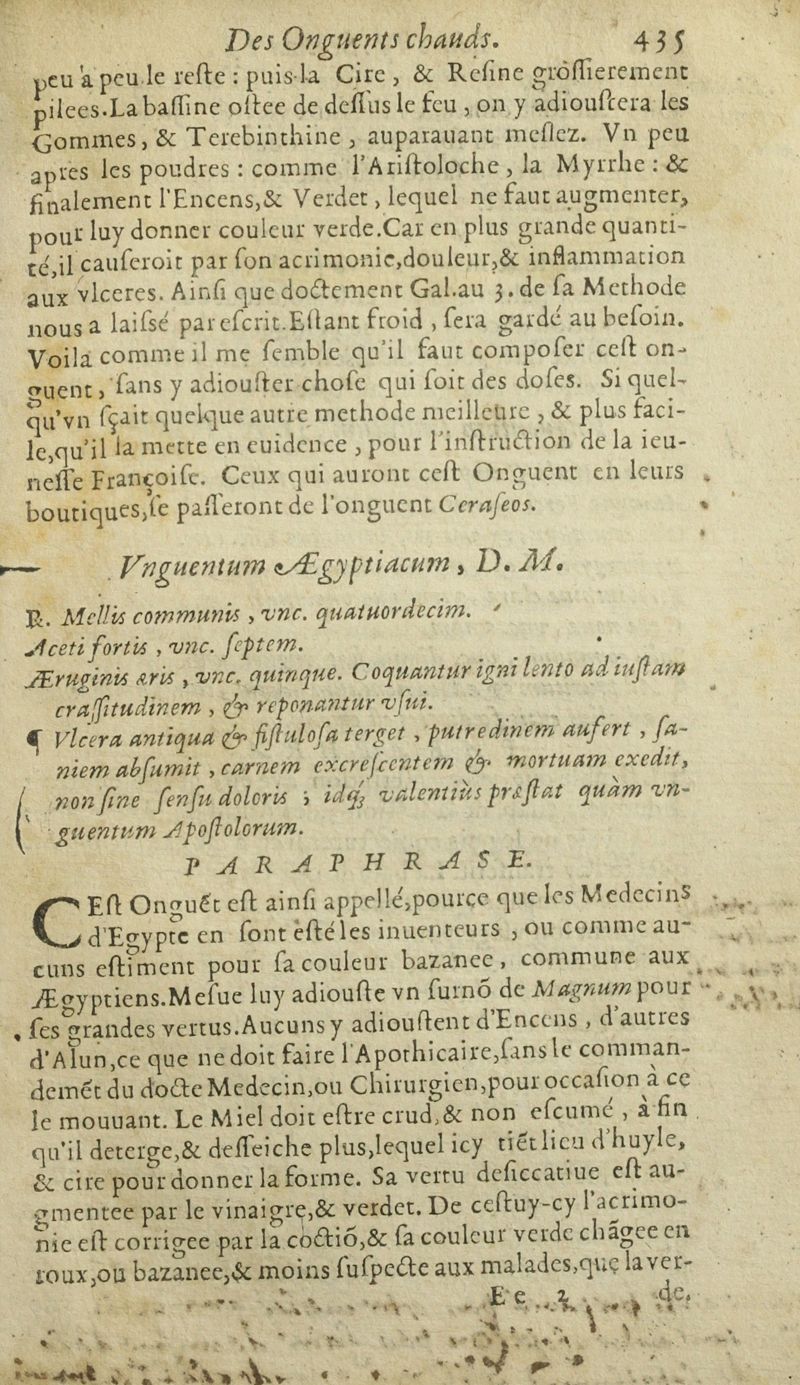 Des Onguents chauds. 435
peu a peu le reste : puis la Cire, & Resine grossierement
pilees.La bassine ostee de dessus le feu , on y adioustera les
Gommes, & Terebinthine , auparauant meslez. Vn peu
apres les poudres : comme l'Aristoloche , la Myrrhe : &
finalement l'Encens,& Verdet , lequel ne faut augmenter,
pour luy donner couleur verde.Car en plus grande quanti-
té,il causeroit par son acrimonie,douleur,& inflammation
aux vlceres. Ainsi que doctement Gal.au 3. de sa Methode
nous a laissé par escrit.Estant froid , sera gardé au besoin.
Voila comme il me semble qu'il faut composer cest on-
guent , sans y adiouster chose qui soit des doses. Si quel-
qu'vn sçait quelque autre methode meilleure , & plus faci-
le,qu'il la mette en euidence , pour l'instruction de la ieu-
nesse Françoise. Ceux qui auront cest Onguent en leurs
boutiques,se passeront de l'onguent Ceraseos.
Vnguentum Ægyptiacum , D. M.
℞. Mellis communis , vnc. quatuordecim.
Aceti fortis , vnc. septem.
Æruginis æris , vnc. quinque. Coquantur igni lento ad iustam
crassitudinem , & reponantur vsui.
¶ Vlcera antiqua & fistulosa terget , putredinem aufert , sa-
niem absumit , carnem excrescentem & mortuam exedit,
non sine sensu doloris ; idq; valentiùs præstat quàm vn-
guentum Apostolorum.
PARAPHRASE.
CEst Onguẽt est ainsi appellé,pource que les Medecins
d'Egypte en sont estéles inuenteurs , ou comme au-
cuns estiment pour sa couleur bazanee , commune aux
Ægyptiens.Mesue luy adiouste vn surnõ de Magnum pour
ses grandes vertus.Aucuns y adioustent d'Encens , d'autres
d'Alun,ce que ne doit faire l'Apothicaire,sans le comman-
demẽt du docte Medecin,ou Chirurgien,pour occasion à ce
le mouuant. Le Miel doit estre crud,& non escumé , à fin
qu'il deterge,& desseiche plus,lequel icy tiẽt lieu d'huyle,
& cire pour donner la forme. Sa vertu desiccatiue est au-
gmentee par le vinaigre,& verdet. De cestuy-cy l'acrimo-
nie est corrigee par la coctiõ,& sa couleur verde chãgee en
roux,ou bazanee,& moins suspecte aux malades,que la ver-
Ee 2 de,